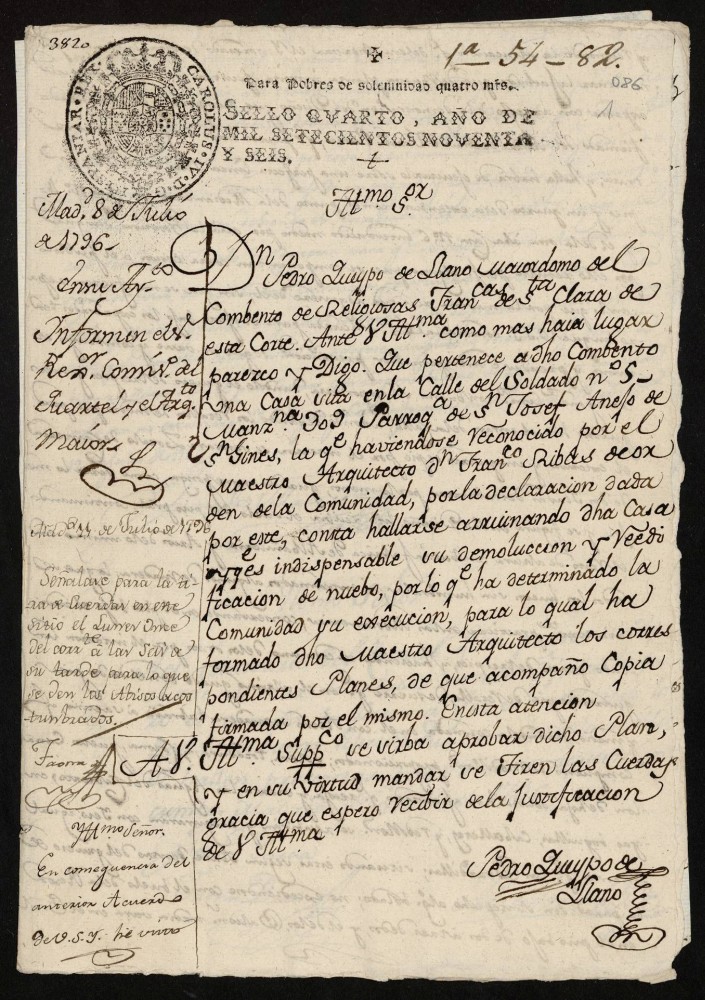 382o
1ª - 54 - 82.
086
1
✠
Para Pobres de solemnidad quatro mrs.
SELLO QVARTO, AÑO DE
MIL SETECIENTOS NOVENTA
Y SEIS.
CAROLUS · IV · D · G · HISPANIAR · REX ·
Yllmo Sor
Dn Pedro Quypo de Llano Mayordomo del
Combento de Religiosas Francas de Sta Clara de
esta Corte. Ante V. Yllma como mas haia lugar
parezco y Digo. Que pertenece a dho Combento
una Casa sita en la Calle del Soldado nº 5
Manzna 309 Parroqa de Sn Josef Anejo de
Sn Gines, la qe haviendose reconocido por el
Maestro Arquitecto Dn Franco Ribas de or
den de la Comunidad, por la declaracion dada
por este, consta hallarse arruinando dha Casa
y qe es indispensable su demoluccion y reedi
ficacion de nuebo, por lo qe ha determinado la
Comunidad su execucion, para lo qual ha
formado dho Maestro Arquitecto los corres
pondientes Planes, de que acompaño Copia
firmada por el mismo. En esta atencion
A V. Yllma Suppco se sirba aprobar dicho Plan,
y en su virtud mandar se tiren las Cuerdas
gracia que espero recibir de la justificacion
de V. Yllma
Pedro Quypo de
Llano
Madd. 8 de Julio
de 1796
En su Ayto
Informen el Sr
Regor Comiso del
Quartel y el Arqto
Maior
Madd 11 de Julio de 1796
Señalase para la ti-
ra de Cuerdas en este
sitio el Lunes Once
del corrte a las Seis de
su tarde para lo que
se den los Avisos acos
tumbrados.
Yllmo Señor.
En consequencia del
anterior Acuerdo
de V. S. Y. he visto